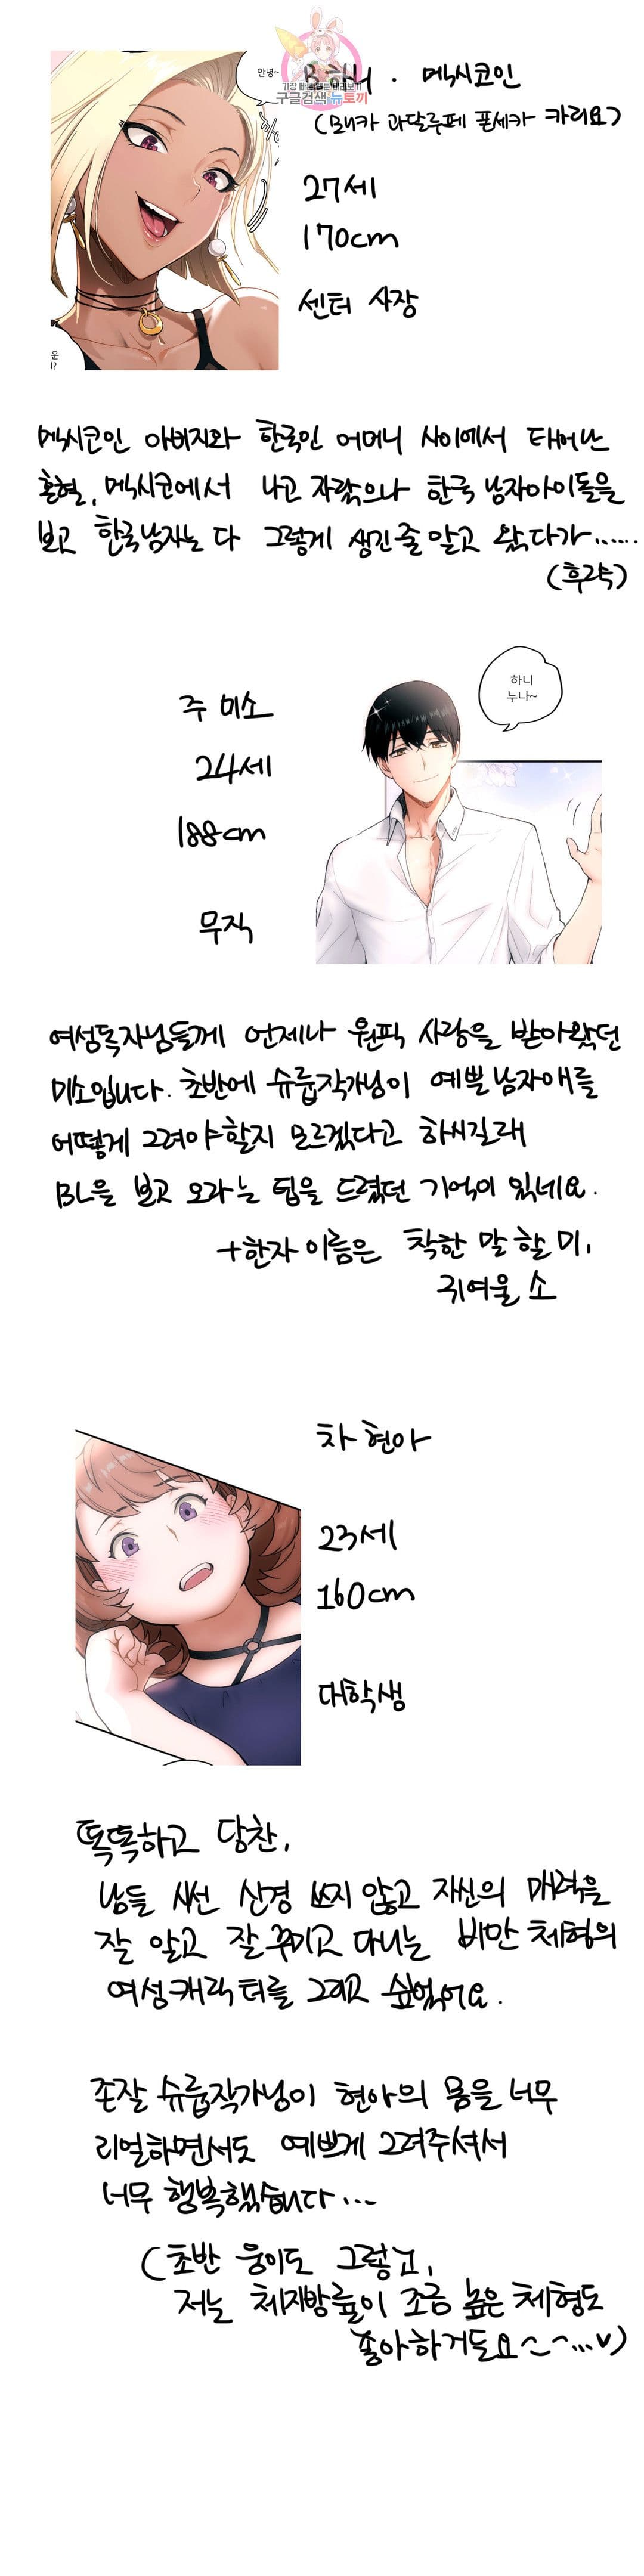 안녕~
B.하니. 멕시코인
가장 빠른 웹툰 미리보기
구글검색 뉴토끼
과달루페 폰세카 카리요)
27세
170cm
센터 사장
운
!?
멕시코인 아버지와 한국인 어머니 사이에서 태어난
혼혈, 멕시코에서 나고 자랐으나 한국 남자아이돌을
보고 한국남자는 다 그렇게 생긴줄 알고 왔다가......
(후회중)
하니
누나~
주 미소
24세
188cm
무직
여성독자님들께 언제나 원픽 사랑을 받아왔던
미소입니다. 초반에 슈룹작가님이 예쁜남자애를
어떻게 그려야할지 모르겠다고 하시길래
BL을 보고 오라는 팁을 드렸던 기억이 있네요.
+한자 이름은 착한 말 할 미,
귀여울 소
차 현아
23세
160cm
대학생
똑똑하고 당찬,
남들 시선 신경 쓰지 않고 자신의 매력을
잘 알고 잘 꾸미고 다니는 비만 체형의
여성캐릭터를 그리고 싶었어요.
존잘 슈룹작가님이 현아의 몸을 너무
리얼하면서도 예쁘게 그려주셔서
너무 행복했습니다...
(초반 웅이도 그렇고,
저는 체지방률이 조금 높은 체형도
좋아하거든요^^...♥)